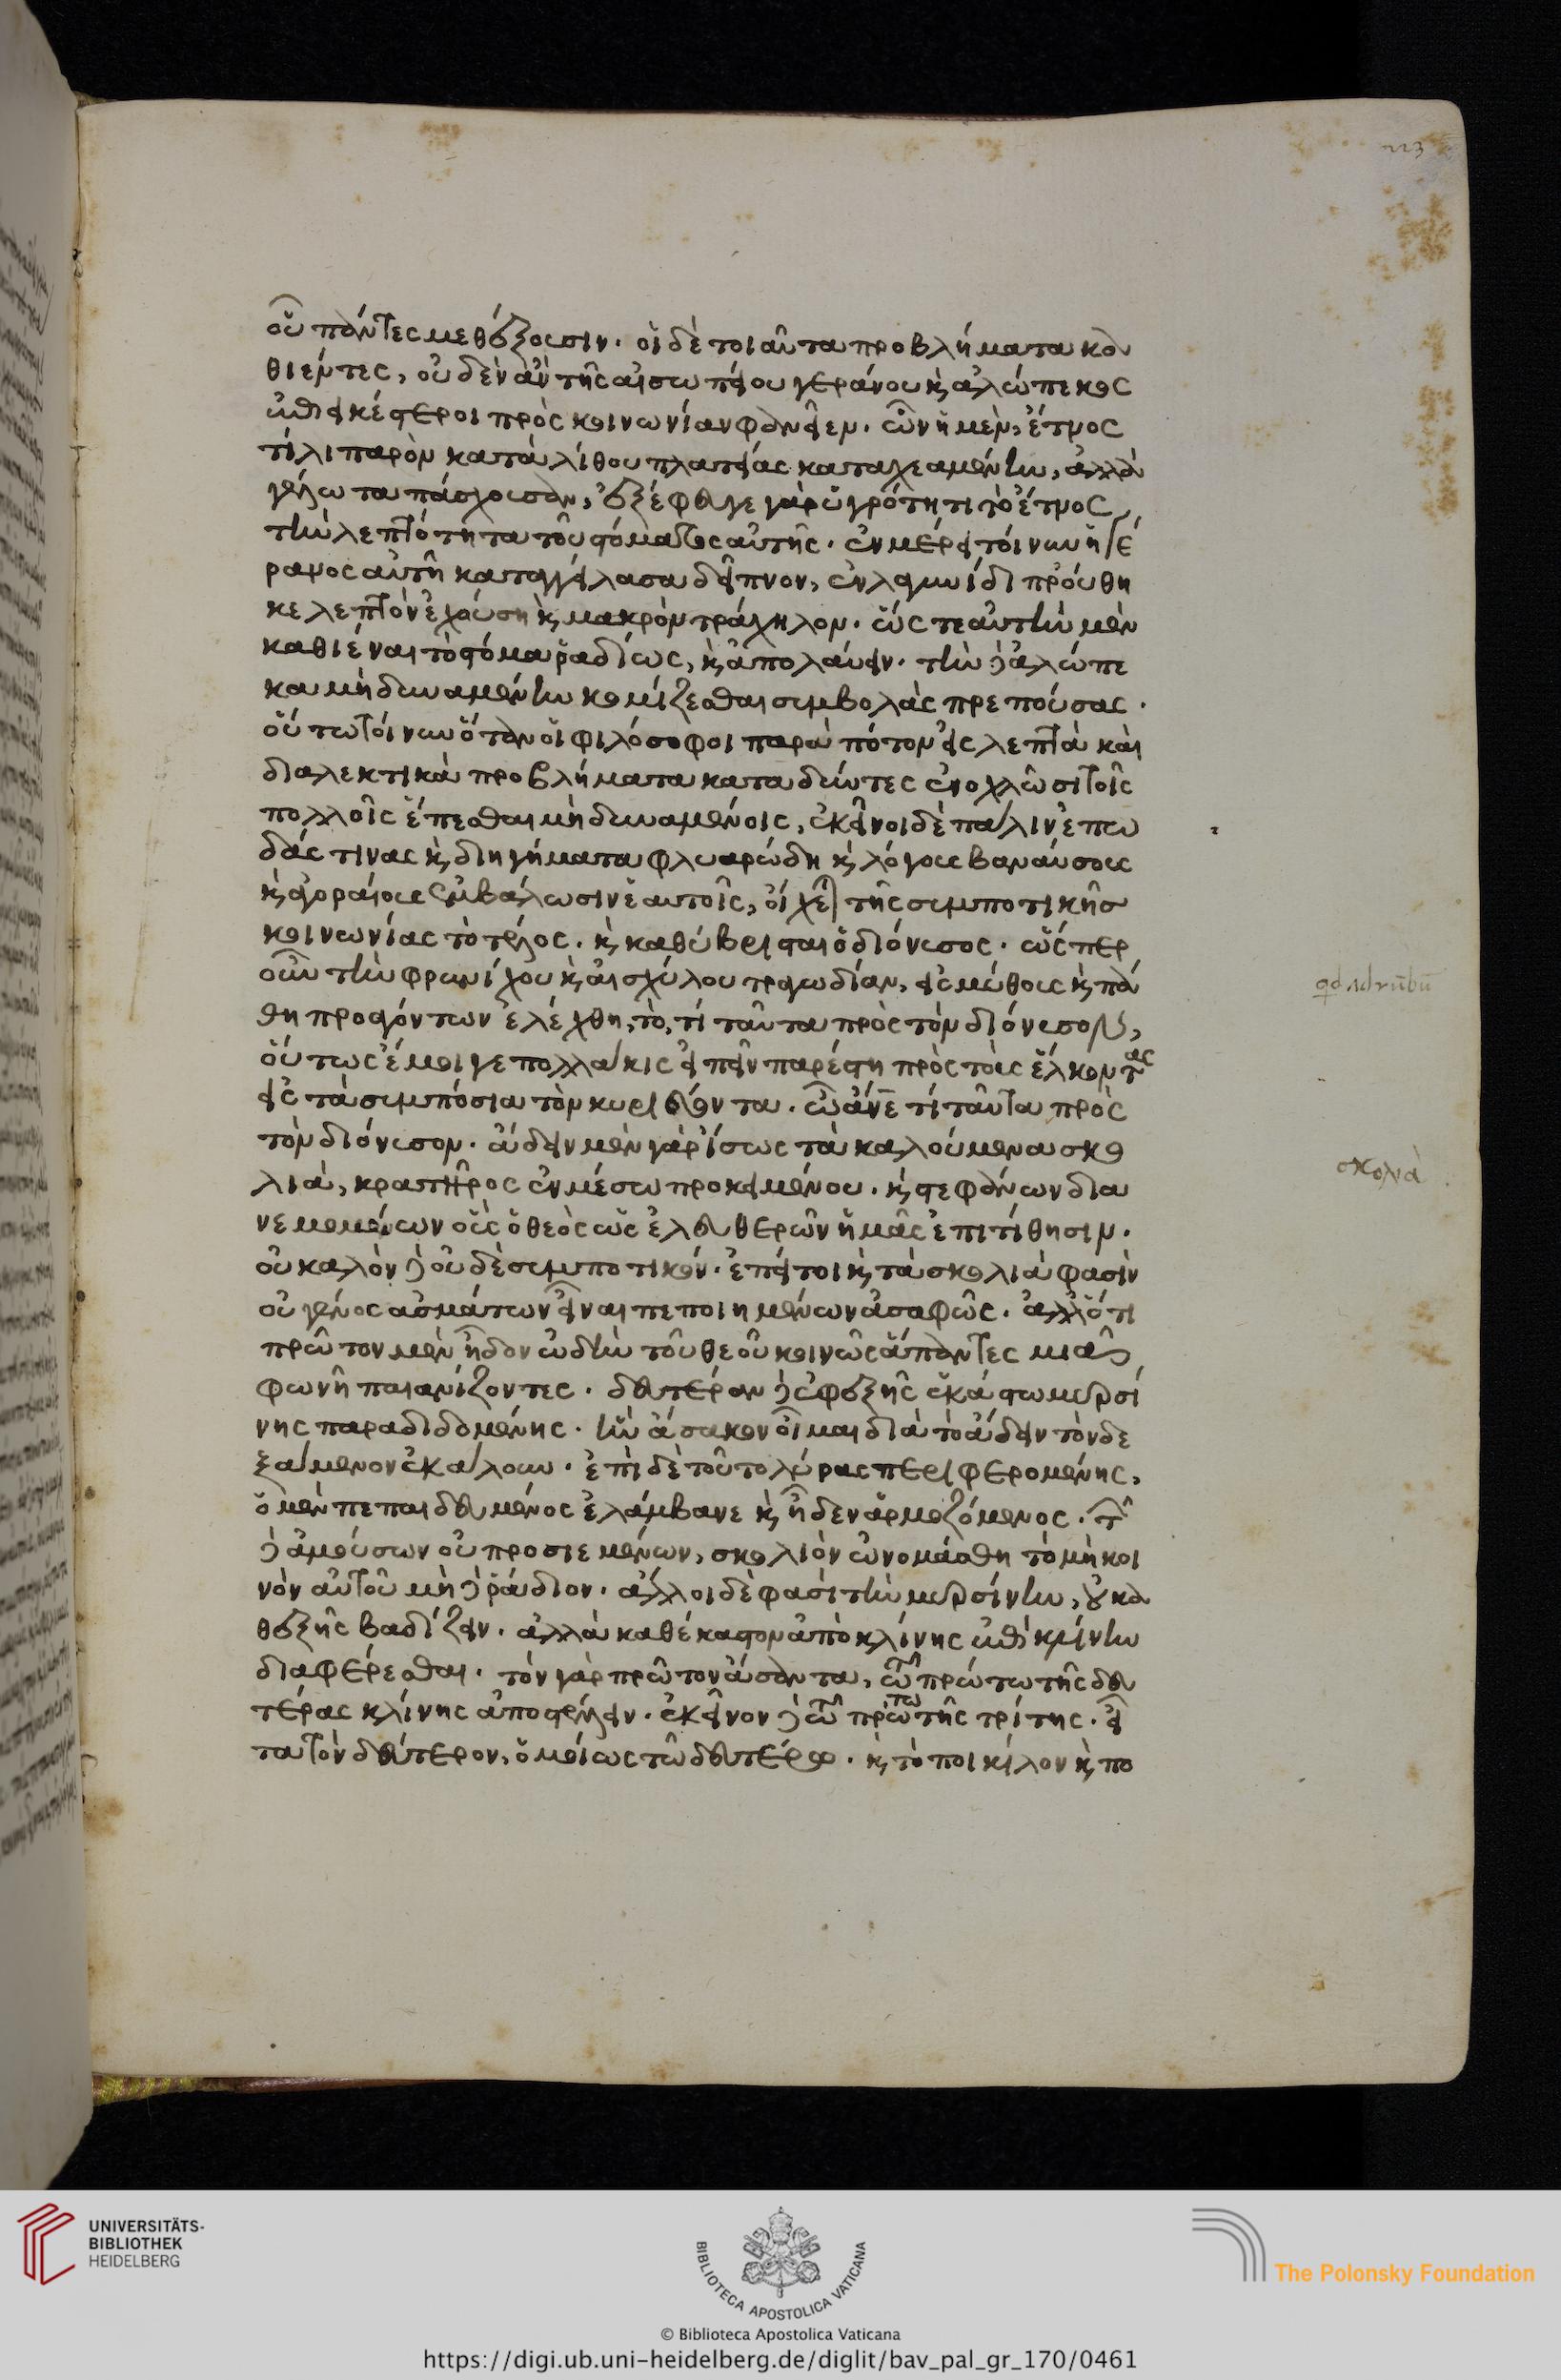 223
οὗ πάντες μεθέξουσιν. οἱ δὲ τοιαῦτα προβλήματα κα
θιέντες, οὐδὲν ἂν τῆς αἰσωπείου γεράνου κ̀ ἀλώπεκος
ἐπιεικέστεροι πρὸς κοινωνίαν φανεῖεν. ὧν ἡ μὲν, ἔτνος
τί λιπαρὸν κατὰ λίθου πλατείας καταχεαμένην, ἀλλὰ
γέλωτα πάσχουσαν, ἐξέφευγε γὰρ ὑγρότητι τὸ ἔτνος
τὴν λεπτότητα τοῦ στόματος αὐτῆς. ἐν μέρει τοίνυν ἡ γέ
ρανος αὐτῆ καταγγείλασα δεῖπνον, ἐν λαγυνίδι προὔθη
κε λεπτὸν ἐχούση κ̀ μακρὸν τράχηλον. ὥς τε αὐτὴν μὲν
καθιέναι τὸ στόμα ῥαδίως, κ̀ ἀπολαύειν. τὴν δὲ ἀλώπε
κα μὴ δυναμένην κομίζεσθαι συμβολὰς πρεπούσας.
οὕτω τοίνυν ὅταν οἱ φιλόσοφοι παρὰ πότον εἰς λεπτὰ καὶ
διαλεκτικὰ προβλήματα καταδύντες ἐνοχλῶσι τοῖς
πολλοῖς ἕπεσθαι μὴ δυναμένοις, ἐκεῖνοι δὲ πάλιν ἐπω
δάς τινας κ̀ διηγήματα φλυαρώδη κ̀ λόγους βαναύσους
κ̀ ἀγοραίους ἐμβάλωσιν ἑαυτοῖς, οἴχεται τῆς συμποτικῆς
κοινωνίας τὸ τέλος. κ̀ καθύβρισται ὁ διόνυσος. ὥς περ
οὖν τὴν φρυνίχου κ̀ αἰσχύλου τραγωδίαν, εἰς μύθους κ̀ πά
θη προαγόντων ἐλέχθη, τὸ, τί ταῦτα πρὸς τὸν διόνυσον,
οὕτως ἔμοιγε πολλάκις εἰπεῖν παρέστη πρὸς τοὺς ἕλκοντας
εἰς τὰ συμπόσια τὸν κυριεύοντα. ὦ ἄνε τί ταῦτα πρὸς
τὸν διόνυσον. ἄδειν μὲν γὰρ ἴσως τὰ καλούμενα σκο
λιὰ, κρατῆρος ἐν μέσω προκειμένου. κ̀ στεφάνων δια
νεμομένων οὓς ὁ θεὸς ὡς ἐλευθερῶν ἡμᾶς ἐπιτίθησιν.
οὐ καλὸν δὲ οὐδὲ συμποτικόν. ἐπεί τοι κ̀ τὰ σκολιὰ φασὶν
οὐ γένος ἀσμάτων εἶναι πεποιημένων ἀσαφῶς. ἀλλ' ὅτι
πρῶτον μὲν ἦδον ὠδὴν τοῦ θεοῦ κοινῶς ἅπαντες μιᾶ
φωνῆ παιανίζοντες. δεύτερον δὲ ἐφεξῆς ἑκάστω μυρσί
νης παραδιδομένης. ἣν ἄσακον οἶμαι διὰ τὸ ἄδειν τὸν δε
ξάμενον ἐκάλουν. ἐπὶ δὲ τοῦτο λύρας περιφερομένης,
ὁ μὲν πεπαιδευμένος ἐλάμβανε κ̀ ἦδεν ἁρμοζόμενος. τῶν
δὲ ἀμούσων οὐ προσιεμένων, σκολιὸν ὠνομάσθη τὸ μὴ κοι
νὸν αὐτοῦ μὴ δὲ ῥάδιον. ἄλλοι δὲ φασὶ τὴν μυρσίνην, οὐ κα
θεξῆς βαδίζειν. ἀλλὰ καθέκαστον ἀπὸ κλίνης ἐπὶ κλίνην
διαφέρεσθαι. τὸν γὰρ πρῶτον ἄσαντα, τῶ πρώτω τῆς δευ
τέρας κλίνης ἀποστέλλειν. ἐκεῖνον δὲ τῶ πρώτω τῆς τρίτης. εἶ
τα τὸν δεύτερον, ὁμοίως τῶ δευτέρω. κ̀ τὸ ποικίλον κ̀ πο
σκολιὰ
UNIVERSITÄTS-
BIBLIOTHEK
HEIDELBERG
BIBLIOTECA APOSTOLICA VATICANA
The Polonsky Foundation
© Biblioteca Apostolica Vaticana
https://digi.ub.uni-heidelberg.de/diglit/bav_pal_gr_170/0461